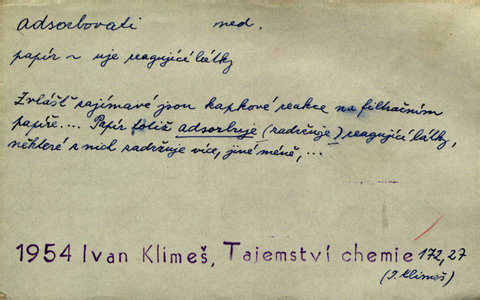 adsorbovati ned.
papír ~ uje reagující látky
Zvlášť zajímavé jsou kapkové reakce na filtračním
papíře.... Papír totiž adsorbuje (zadržuje) reagující látky,
některé z nich zadržuje více, jiné méně,...
1954 Ivan Klimeš, Tajemství chemie 172,27
(I. Klimeš)